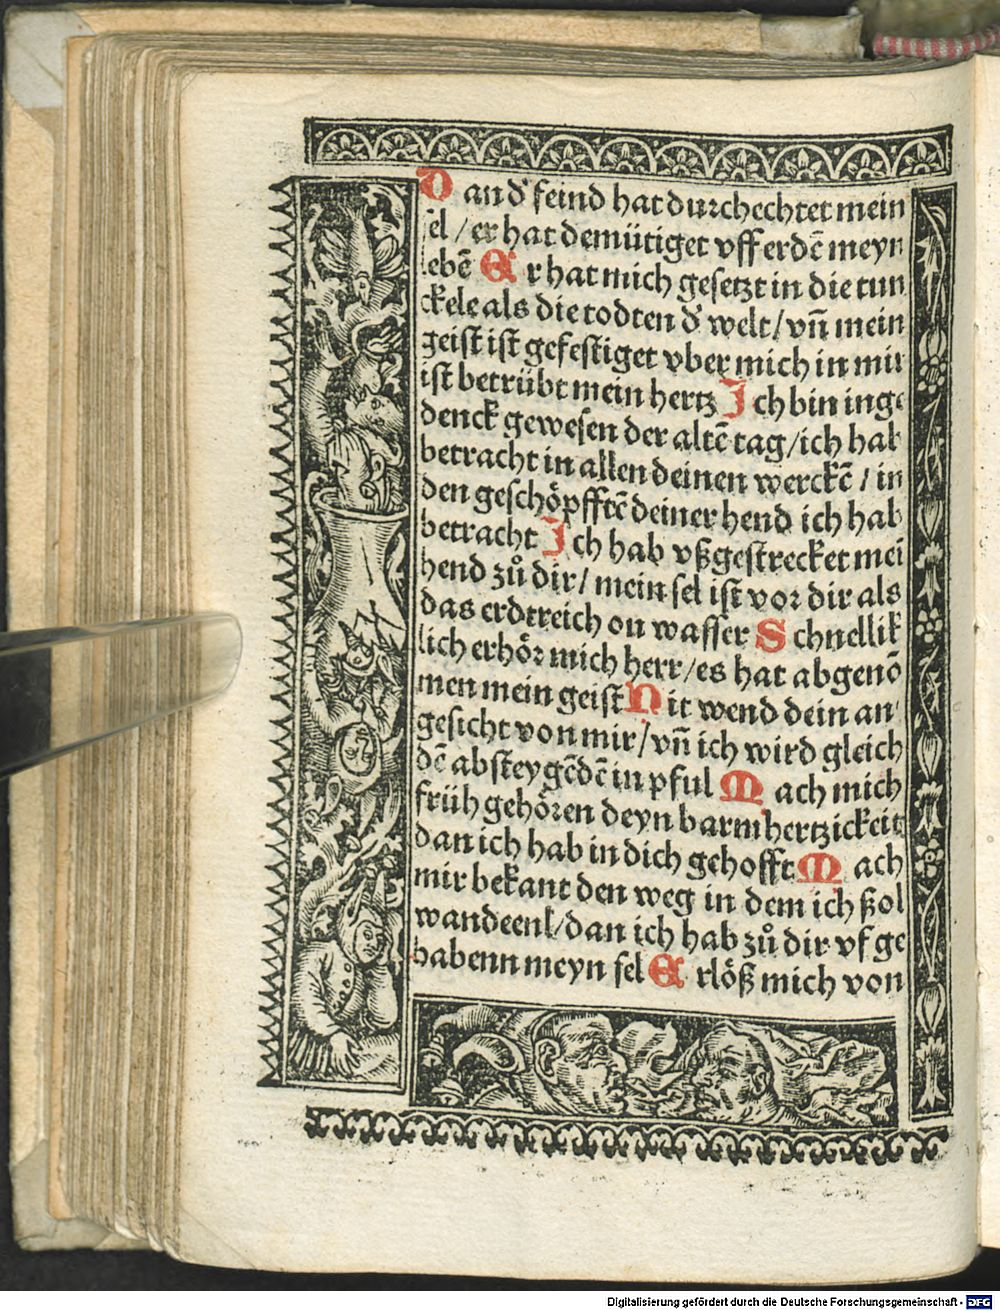 Dan dˀ feind hat durchechtet mein
sel / er hat demütiget vff erdē meyn
lebē Er hat mich gesetzt in die tun
ckele als die todten dˀ welt / vñ mein
geist ist gefestiget vber mich in mir
ist betrübt mein hertz Ich bin inge
denck gewesen der altē tag / ich hab
betracht in allen deinen werckē / in
den geschöpfftē deiner hend ich hab
betracht Ich hab vßgestrecket mei
hend zů dir / mein sel ist vor dir als
das erdtreich on wasser Schnellik
lich erhör mich herr / es hat abgenō
men mein geist Nit wend dein an
gesicht von mir / vñ ich wird gleich
dē absteygēdē in pful Mach mich
früh gehören deyn barmhertzickeit
dan ich hab in dich gehofft Mach
mir bekant den weg in dem ich ßol
wandeenl / dan ich hab zů dir vf ge
habenn meyn sel Erlöß mich von
Digitalisierung gefördert durch die Deutsche Forschungsgemeinschaft - DFG